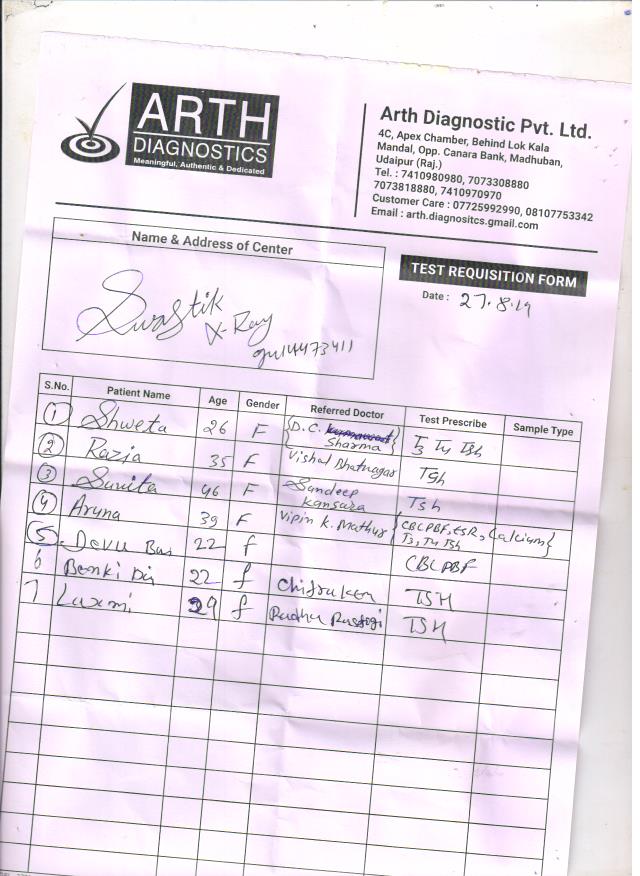 ARTH
DIAGNOSTICS
Meaningful, Authentic & Dedicated
Arth Diagnostic Pvt. Ltd.
4C, Apex Chamber, Behind Lok Kala
Mandal, Opp. Canara Bank, Madhuban,
Udaipur (Raj.)
Tel. : 7410980980, 7073308880
7073818880, 7410970970
Customer Care : 07725992990, 08107753342
Email : arth.diagnositcs.gmail.com
Name & Address of Center
Swastik
X-Ray
9414473411
TEST REQUISITION FORM
Date : 27.8.19
S.No. Patient Name Age Gender Referred Doctor Test Prescribe Sample Type
1 Shweta 26 F {D.C. Sharma} T3 T4 Tsh
2 Razia 35 F Vishal Bhatnagar Tsh
3 Sunita 46 F Sandeep Kansara Tsh
4 Aruna 39 F Vipin K. Mathur {CBC,PBF, ESR, Calcium} T3, T4 Tsh
5 Devu 22 f CBC,PBF
6 22 f TSH
7 Laxmi 29 f Radha Rastogi TSH